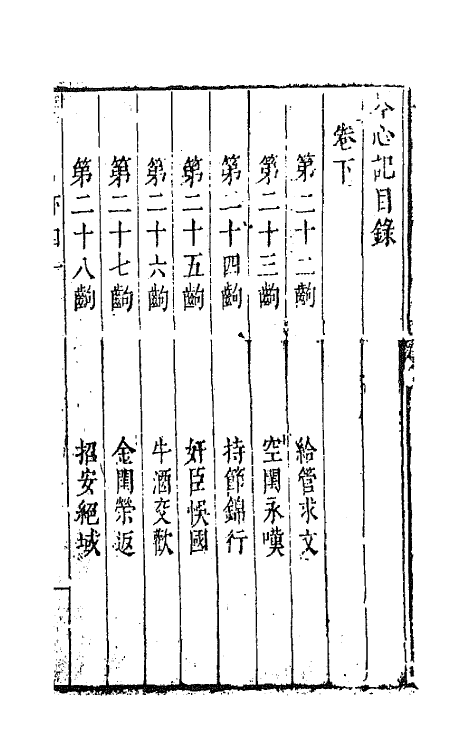 琴心記目錄
卷下
第二十二齣 給管求文
第二十三齣 空閨永嘆
第二十四齣 持節錦行
第二十五齣 奸臣悞國
第二十六齣 牛酒交歡
第二十七齣 金閨榮返
第二十八齣 招安絕域